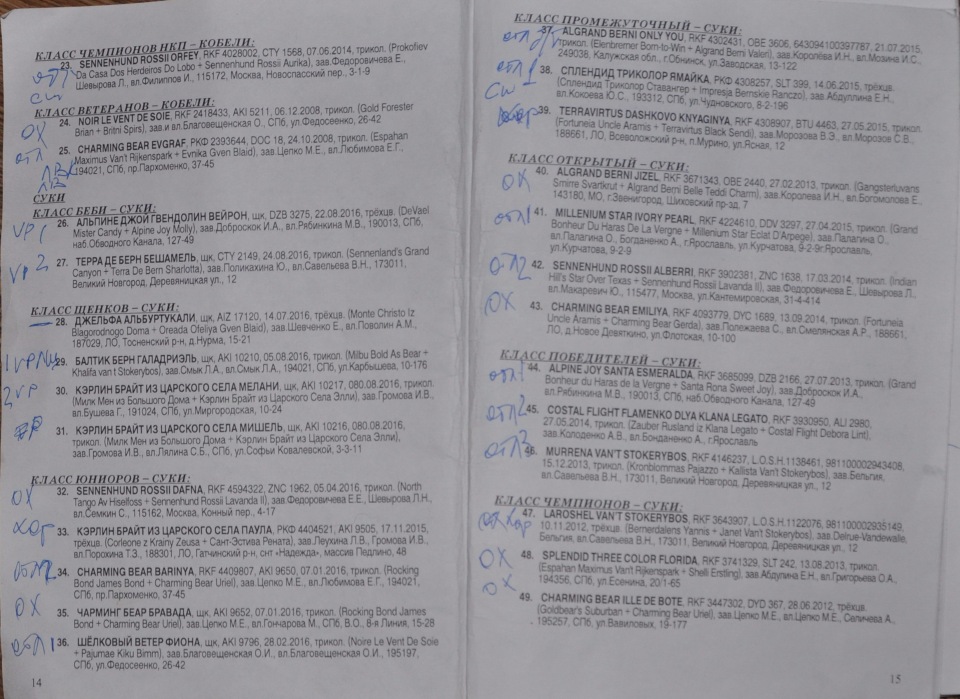 КЛАСС ЧЕМПИОНОВ НКП – КОБЕЛИ:
23. SENNENHUND ROSSII ORFEY, RKF 4028002, CTY 1568, 07.06.2014, трикол. (Prokofiev
Da Casa Dos Herdeiros Do Lobo + Sennenhund Rossii Aurika), зав.Федоровичева Е.,
Шевырова Л., вл.Филиппов И., 115172, Москва, Новоспасский пер., 3-1-9
КЛАСС ВЕТЕРАНОВ – КОБЕЛИ:
24. NOIR LE VENT DE SOIE, RKF 2418433, AKI 5211, 06.12.2008, трикол. (Gold Forester
Brian + Britni Spirs), зав.и вл.Благовещенская О., СПб, ул.Федосеенко, 26-42
25. CHARMING BEAR EVGRAF, РКФ 2393644, DOC 18, 24.10.2008, трикол. (Espahan
Maximus Van't Rijkenspark + Evnika Gven Blaid), зав.Цепко М.Е., вл.Любимова Е.Г.,
194021, СПб, пр.Пархоменко, 37-45
СУКИ
КЛАСС БЕБИ – СУКИ:
26. АЛЬПИНЕ ДЖОЙ ГВЕНДОЛИН ВЕЙРОН, щк, DZB 3275, 22.08.2016, трёхцв. (DeVael
Mister Candy + Alpine Joy Molly), зав.Доброскок И.А., вл.Рябинкина М.В., 190013, СПб,
наб.Обводного Канала, 127-49
27. ТЕРРА ДЕ БЕРН БЕШАМЕЛЬ, щк, CTY 2149, 24.08.2016, трёхцв. (Sennenland's Grand
Canyon + Terra De Bern Sharlotta), зав.Поликахина Ю., вл.Савельева В.Н., 173011,
Великий Новгород, Деревяницкая ул., 12
КЛАСС ЩЕНКОВ – СУКИ:
28. ДЖЕЛЬФА АЛЬБУРТУКАЛИ, щк, AIZ 17120, 14.07.2016, трёхцв. (Monte Christo Iz
Blagorodnogo Doma + Oreada Ofeliya Gven Blaid), зав.Шевченко Е., вл.Поволин А.М.,
187029, ЛО, Тосненский р-н, д.Нурма, 15-21
29. БАЛТИК БЕРН ГАЛАДРИЭЛЬ, щк, AKI 10210, 05.08.2016, трикол. (Milbu Bold As Bear +
Khalifa van t Stokerybos), зав.Смык Л.А., вл.Смык Л.А., 194021, СПб, ул.Карбышева, 10-176
30. КЭРЛИН БРАЙТ ИЗ ЦАРСКОГО СЕЛА МЕЛАНИ, щк, AKI 10217, 080.08.2016, трикол.
(Милк Мен из Большого Дома + Кэрлин Брайт из Царского Села Элли), зав.Громова И.В.,
вл.Бушева Г., 191024, СПб, ул.Миргородская, 10-24
31. КЭРЛИН БРАЙТ ИЗ ЦАРСКОГО СЕЛА МИШЕЛЬ, щк, AKI 10216, 080.08.2016,
трикол. (Милк Мен из Большого Дома + Кэрлин Брайт из Царского Села Элли),
зав.Громова И.В., вл.Лялина С.Б., СПб, ул.Софьи Ковалевской, 3-3-11
КЛАСС ЮНИОРОВ – СУКИ:
32. SENNENHUND ROSSII DAFNA, RKF 4594322, ZNC 1962, 05.04.2016, трикол. (North
Tango Av Hiselfoss + Sennenhund Rossii Lavanda II), зав.Федоровичева Е.Е., Шевырова Л.Н.,
вл.Семкин С., 115162, Москва, Конный пер., 4-17
33. КЭРЛИН БРАЙТ ИЗ ЦАРСКОГО СЕЛА ПАУЛА, РКФ 4404521, AKI 9505, 17.11.2015,
трёхцв. (Corleone z Krainy Zeusa + Сант-Эстива Рената), зав.Леухина Л.В., Громова И.В.,
вл.Порохина Т.З., 188301, ЛО, Гатчинский р-н, снт «Надежда», массив Педлино, 48
34. CHARMING BEAR BARINYA, RKF 4409807, AKI 9650, 07.01.2016, трикол. (Rocking
Bond James Bond + Charming Bear Uriel), зав.Цепко М.Е., вл.Любимова Е.Г., 194021,
СПб, пр.Пархоменко, 37-45
35. ЧАРМИНГ БЕАР БРАВАДА, щк, AKI 9652, 07.01.2016, трикол. (Rocking Bond James
Bond + Charming Bear Uriel), зав.Цепко М.Е., вл.Гончарова М., СПб, В.О., 8-я Линия, 15-28
36. ШЁЛКОВЫЙ ВЕТЕР ФИОНА, щк, AKI 9796, 28.02.2016, трикол. (Noire Le Vent De Soie
+ Pajumae Kiku Bimm), зав.Благовещенская О.И., вл.Благовещенская О.И., 195197,
СПб, ул.Федосеенко, 26-42
14
КЛАСС ПРОМЕЖУТОЧНЫЙ – СУКИ:
37. ALGRAND BERNI ONLY YOU, RKF 4302431, OBE 3606, 643094100397787, 21.07.2015,
трикол. (Eienbremer Born-to-Win + Algrand Berni Valeri), зав.Королёва И.Н., вл.Мозина И.С.,
249038, Калужская обл., г.Обнинск, ул.Заводская, 13-122
38. СПЛЕНДИД ТРИКОЛОР ЯМАЙКА, РКФ 4308257, SLT 399, 14.06.2015, трёхцв.
(Сплендид Триколор Ставангер + Impresja Bernskie Ranczo), зав.Абдуллина Е.Н.,
вл.Кокоева Ю.С., 193312, СПб, ул.Чудновского, 8-2-196
39. TERRAVIRTUS DASHKOVO KNYAGINYA, RKF 4308907, BTU 4463, 27.05.2015, трикол.
(Fortuneia Uncle Aramis + Terravirtus Black Sendi), зав.Морозова В.Э., вл.Морозов С.В.,
188661, ЛО, Всеволожский р-н, п.Мурино, ул.Ясная, 12
КЛАСС ОТКРЫТЫЙ – СУКИ:
40. ALGRAND BERNI JIZEL, RKF 3671343, OBE 2440, 27.02.2013, трикол. (Gangsterluvans
Smirre Svartkrut + Algrand Berni Belle Teddi Charm), зав.Королева И.Н., вл.Богомолова Е.,
143180, МО, г.Звенигород, Шиховский пр-зд, 7
41. MILLENIUM STAR IVORY PEARL, RKF 4224610, DDV 3297, 27.04.2015, трикол. (Grand
Bonheur Du Haras De La Vergne + Millenium Star Eclat D'Arpege), зав.Палагина О.,
вл.Палагина О., Богданенко А., г.Ярославль, ул.Курчатова, 9-2-9г.Ярославль,
ул.Курчатова, 9-2-9
42. SENNENHUND ROSSII ALBERRI, RKF 3902381, ZNC 1638, 17.03.2014, трикол. (Indian
Hill's Star Over Texas + Sennenhund Rossii Lavanda II), зав.Федоровичева Е., Шевырова Л.,
вл.Макаревич Ю., 115477, Москва, ул.Кантемировская, 31-4-414
43. CHARMING BEAR EMILIYA, RKF 4093779, DYC 1689, 13.09.2014, трикол. (Fortuneia
Uncle Aramis + Charming Bear Gerda), зав.Полежаева С., вл.Смелянская А.Р., 188661,
ЛО, д.Новое Девяткино, ул.Флотская, 10-100
КЛАСС ПОБЕДИТЕЛЕЙ – СУКИ:
44. ALPINE JOY SANTA ESMERALDA, RKF 3685099, DZB 2166, 27.07.2013, трикол. (Grand
Bonheur du Haras de la Vergne + Santa Rona Sweet Joy), зав.Доброскок И.А.,
вл.Рябинкина М.В., 190013, СПб, наб.Обводного Канала, 127-49
45. COSTAL FLIGHT FLAMENKO DLYA KLANA LEGATO, RKF 3930950, ALI 2980,
27.05.2014, трикол. (Zauber Rusland iz Klana Legato + Costal Flight Debora Lint),
зав.Колоденко А.В., вл.Бонданенко А., г.Ярославль
46. MURRENA VAN'T STOKERYBOS, RKF 4146237, L.O.S.H.1138461, 981100002943408,
15.12.2013, трикол. (Kronblommas Pajazzo + Kallista Van't Stokerybos), зав.Бельгия,
вл.Савельева В.Н., 173011, Великий Новгород, Деревяницкая ул., 12
КЛАСС ЧЕМПИОНОВ – СУКИ:
47. LAROSHEL VAN'T STOKERYBOS, RKF 3643907, L.O.S.H.1122076, 981100002935149,
10.11.2012, трёхцв. (Bernerdalens Yannis + Janet Van't Stokerybos), зав.Delrue-Vandewalle,
Бельгия, вл.Савельева В.Н., 173011, Великий Новгород, Деревяницкая ул., 12
48. SPLENDID THREE COLOR FLORIDA, RKF 3741329, SLT 242, 13.08.2013, трикол.
(Espahan Maximus Van't Rijkenspark + Shelli Erstling), зав.Абдулина Е.Н., вл.Григорьева О.А.,
194356, СПб, ул.Есенина, 20/1-65
49. CHARMING BEAR ILLE DE BOTE, RKF 3447302, DYD 367, 28.06.2012, трёхцв.
(Goldbear's Suburban + Charming Bear Uriel), зав.Цепко М.Е., вл.Цепко М.Е., Селичева А.,
195257, СПб, ул.Вавиловых, 19-177
15